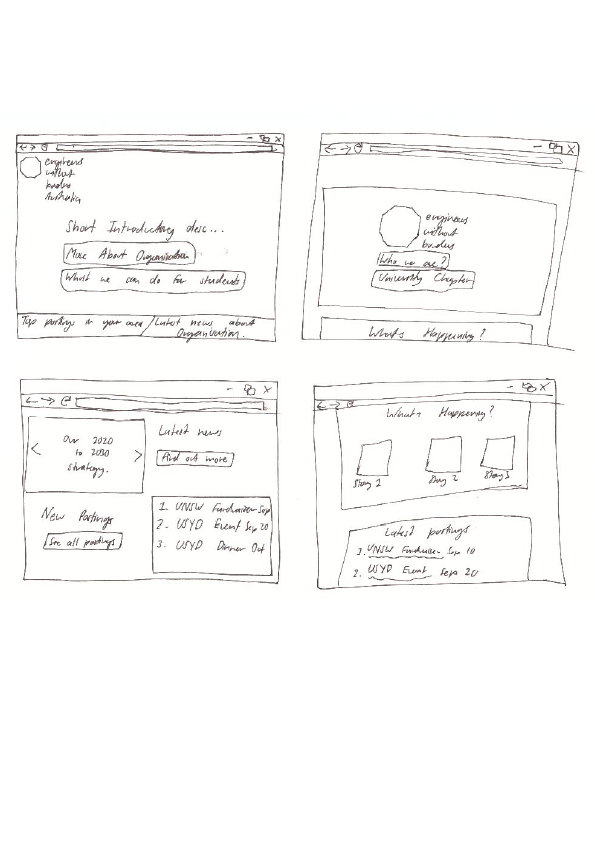 engineers
without
borders
Australia
Short Introductory desc...
More About Organisation
What we can do for students
Top postings in your area / Latest news about
Organisation.
engineers
without
borders
Who we are?
University Chapter
What's Happening?
Our 2020
to 2030
strategy.
Latest news
Find out more
New Postings
See all postings
1. UNSW Fundraiser Sep
2. USYD Event Sep 20
3. USYD Dinner Out
What's Happening?
Story 1
Story 3
Latest postings
UNSW Fundraiser Sep 10
2. USYD Event Sep 20